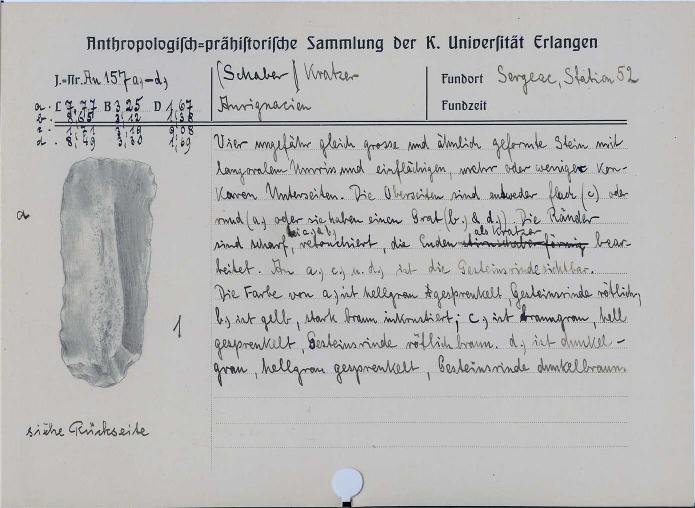 Anthropologisch=prähistorische Sammlung der K. Universität Erlangen
J.=Nr. Au 157 a,-d,
(Schaber) Kratzer
Fundort Sergeac, Station 52
a. L 7,77 B 3,25 D 1,67
Aurignacien
Fundzeit
d. 8,49 3,30 1,69
Vier ungefähr gleich grosse und ähnlich geformte Stein mit
langovalem Umriss und einflächigen, mehr oder weniger kon-
kaven Unterseiten. Die Oberseiten sind entweder flach (c) oder
rund (a, oder sie haben einen Grat (b, & d,). Die Ränder
sind scharf, bei a, & b, retouchiert, die Enden als Kratzer bear-
beitet. An a, c, u. d, ist die Gesteinsrinde sichtbar.
Die Farbe von a, ist hellgrau gesprenkelt, Gesteinsrinde rötlich,
b, ist gelb, stark braun inkrustiert; c, ist braungrau, hell
gesprenkelt, Gesteinsrinde rötlich braun. d, ist dunkel-
grau, hellgrau gesprenkelt, Gesteinsrinde dunkelbraun.
a
1
siehe Rückseite